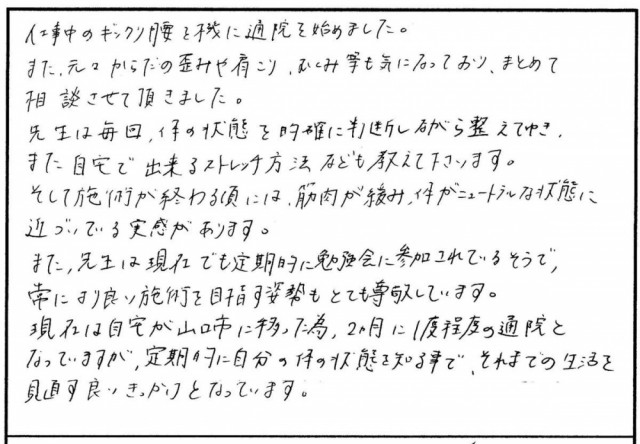 仕事中のギックリ腰を機に通院を始めました。
また、元々からだの歪みや肩こり、むくみ等も気になっており、まとめて
相談させて頂きました。
先生は毎回、体の状態を的確に判断しながら整えてゆき、
また自宅で出来るストレッチ方法なども教えて下さいます。
そして施術が終わる頃には、筋肉が緩み、体がニュートラルな状態に
近づいている実感があります。
また、先生は現在でも定期的に勉強会に参加されているそうで、
常により良い施術を目指す姿勢もとても尊敬しています。
現在は自宅が山口市に移った為、2ヵ月に1度程度の通院と
なっていますが、定期的に自分の体の状態を知る事で、それまでの生活を
見直す良いきっかけとなっています。